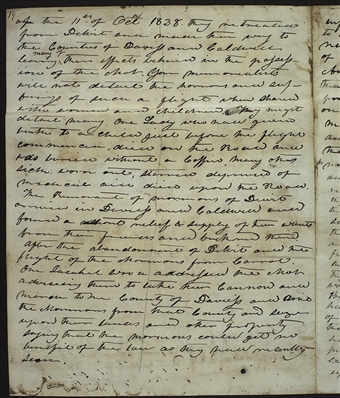 of the 11th of Oct 1838 they retreated
from Dewit and made their way to
the Counties of Daviess and Caldwell
leaving many of their effects behind in the posses-
sion of the Mob. Your memorialists
will not detail the horrors and suf-
ferings of such a flight, when shared
with women and children. They might
detail many. One Lady who had given
birth to a child just before the flight
commenced, died on the Road and
was buried without a Coffin. Many others
sick, worn out, starved deprived of
medical aid died upon the Road.
The Remnant of mormons of Dewit
arrived in Daviess and Caldwell and
found a short relief & supply of their wants
from their friends and brethren there
After the abandonment of Dewit and the
flight of the mormons from Carrol.
One addressed the Mob
advising them to take their Cannon and
march to the County of Daviess and
the mormons from that County and seize
upon their lands and other property
saying that the mormons could get no
benefit of the law as they had recently
seen.